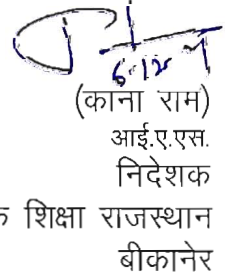 (काना राम)
आई.ए.एस.
निदेशक
शिक्षा राजस्थान
बीकानेर